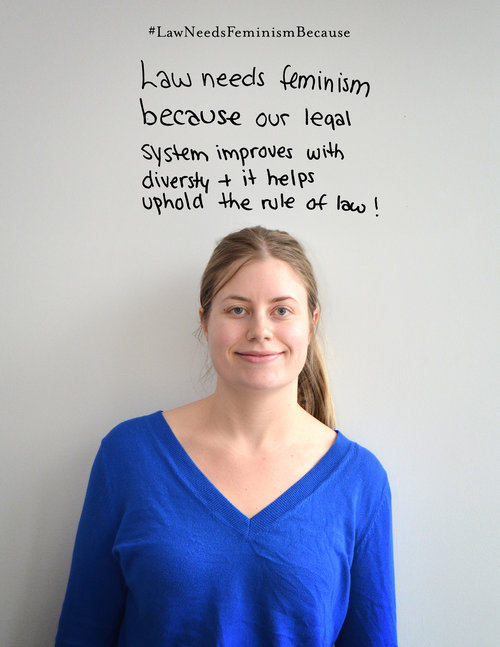 #LawNeedsFeminismBecause
Law needs feminism
because our legal
system improves with
diversty + it helps
uphold the rule of law!